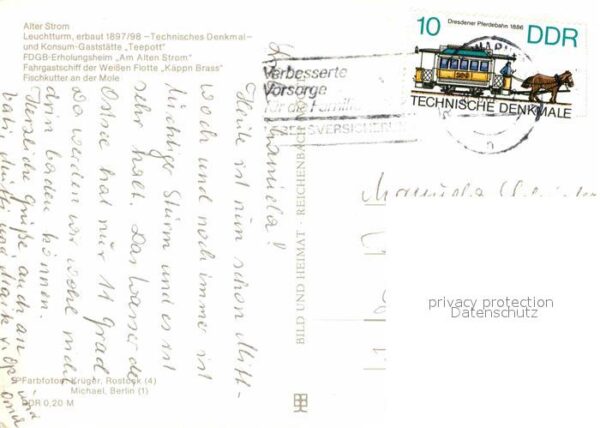 Alter Strom
Leuchtturm, erbaut 1897/98 —Technisches Denkmal—
und Konsum-Gaststätte „Teepott"
FDGB-Erholungsheim „Am Alten Strom"
Fahrgastschiff der Weißen Flotte „Käppn Brass"
Fischkutter an der Mole
Dresdener Pferdebahn 1886
10 DDR
TECHNISCHE DENKMALE
Verbesserte
Vorsorge
für die Familie
Manuela!
Heute ist nun schon Mitt-
woch und noch immer ist
Sturm und es ist
sehr kalt. Das Wasser der
Ostsee hat nur 11 Grad
da werden wir wohl nicht
drin baden können.
Herzliche Grüße, auch an
Vati, Mutti und Maik v. Opi und
Oma
BILD UND HEIMAT · REICHENBACH
Manuela
privacy protection
Datenschutz
Farbfotos: Krüger, Rostock (4)
Michael, Berlin (1)
DDR 0,20 M